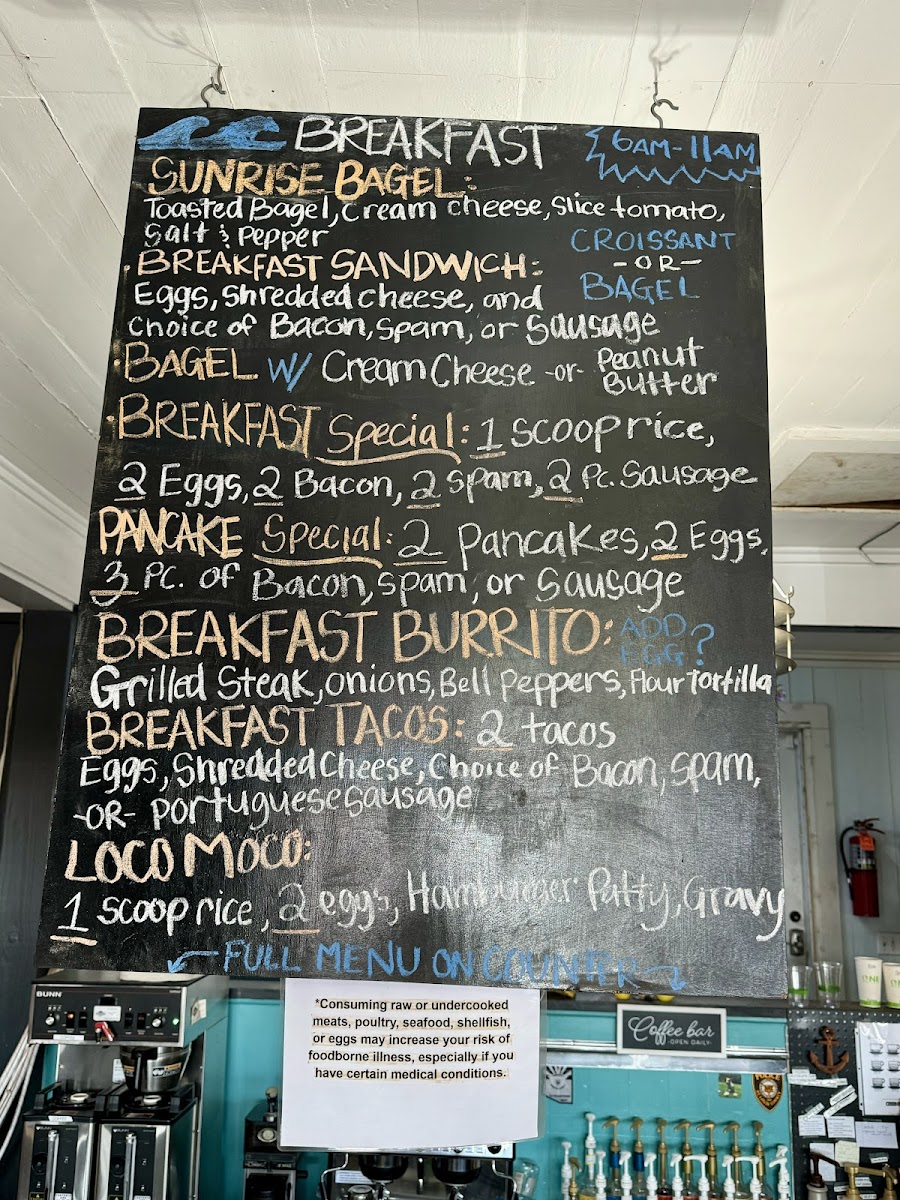 BREAKFAST 6AM-11AM
SUNRISE BAGEL:
Toasted Bagel, Cream cheese, Slice tomato,
Salt & Pepper
CROISSANT
-OR-
BAGEL
BREAKFAST SANDWICH:
Eggs, Shredded cheese, and
choice of Bacon, Spam, or Sausage
BAGEL W/ Cream Cheese -or- Peanut
Butter
BREAKFAST Special: 1 scoop rice,
2 Eggs, 2 Bacon, 2 spam, 2 Pc. Sausage
PANCAKE Special: 2 Pancakes, 2 Eggs,
3 Pc. of Bacon, spam, or Sausage
BREAKFAST BURRITO: ADD
EGG?
Grilled Steak, onions, Bell Peppers, Flour Tortilla
BREAKFAST TACOS: 2 tacos
Eggs, Shredded Cheese, Choice of Bacon, Spam,
-OR- Portuguese sausage
LOCO MOCO:
1 scoop rice, 2 eggs, Hamburger Patty, Gravy
FULL MENU ON COUNTER
*Consuming raw or undercooked
meats, poultry, seafood, shellfish,
or eggs may increase your risk of
foodborne illness, especially if you
have certain medical conditions.
BUNN
Coffee bar
-OPEN DAILY-